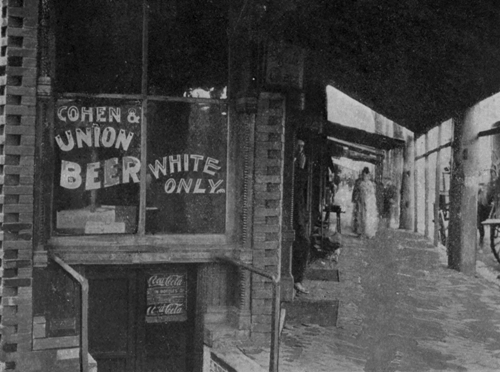 COHEN &
UNION
BEER
WHITE
ONLY.
Coca-Cola
Coca-Cola